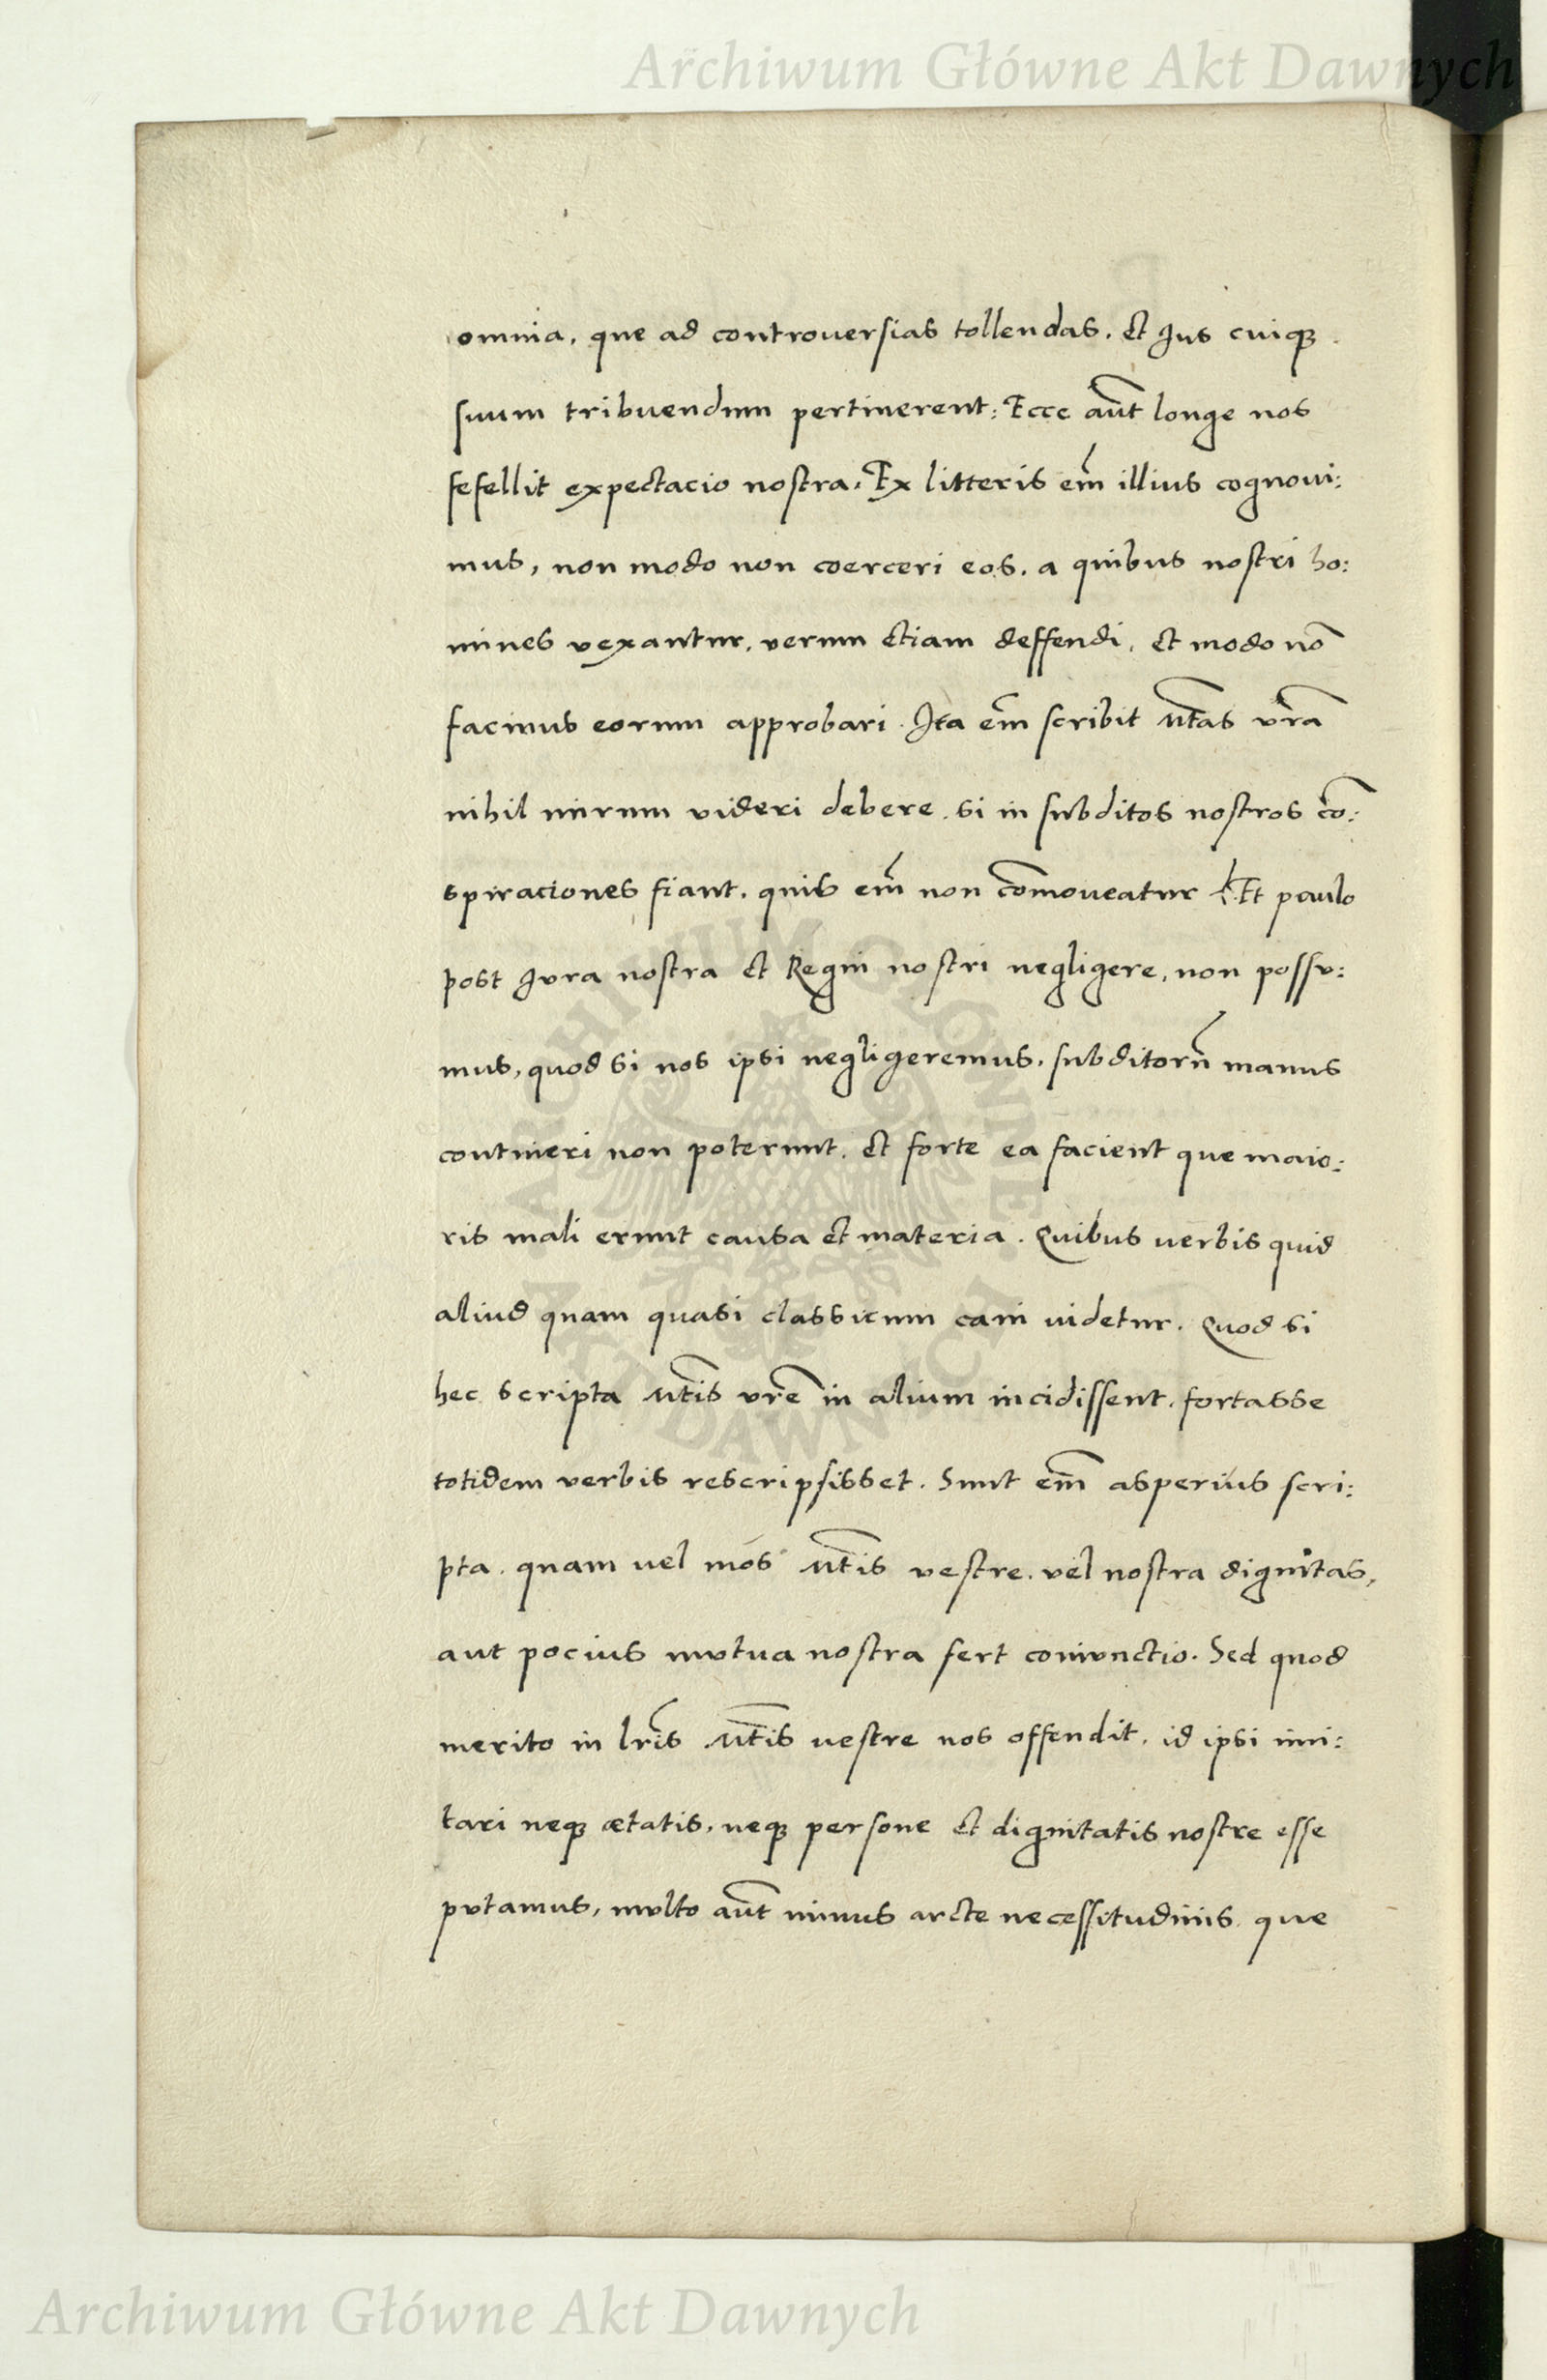 Archiwum Główne Akt Dawnych
omnia, que ad controuersias tollendas, et Jus cuiqȝ
suum tribuendum pertinerent: Ecce aut̃ longe nos
fefellit expectacio nostra, Ex litteris em̃ illius cognoui:
mus, non modo non coerceri eos, a quibus nostri ho:
mines vexantur, verum etiam deffendi, et modo nõ
facinus eorum approbari. Ita em̃ scribit Mt̃as vr̃a
nihil mirum videri debere, si in subditos nostros cõ:
spiraciones fiant, quis em̃ non com̃oveatur Et paulo
post Jura nostra et Regni nostri negligere, non possu:
mus, quod si nos ipsi negligeremus, subditorũ manus
contineri non poterunt, et forte ea facient que maio:
ris mali erunt causa et materia. Quibus verbis quid
aliud quam quasi classicum cani videtur. Quod si
hec scripta Mt̃is vr̃e in alium incidissent, fortasse
totidem verbis rescripsisset. Sunt em̃ asperius scri:
pta, quam vel mos Mt̃is vestre, vel nostra dignitas,
aut pocius mutua nostra fert coniunctio. Sed quod
merito in lr̃is Mt̃is vestre nos offendit, id ipsi imi:
tari neqȝ ætatis, neqȝ persone et dignitatis nostre esse
putamus, multo aut̃ minus arcte necessitudinis, que
ARCHIWUM GŁÓWNE
AKT DAWNYCH
Archiwum Główne Akt Dawnych